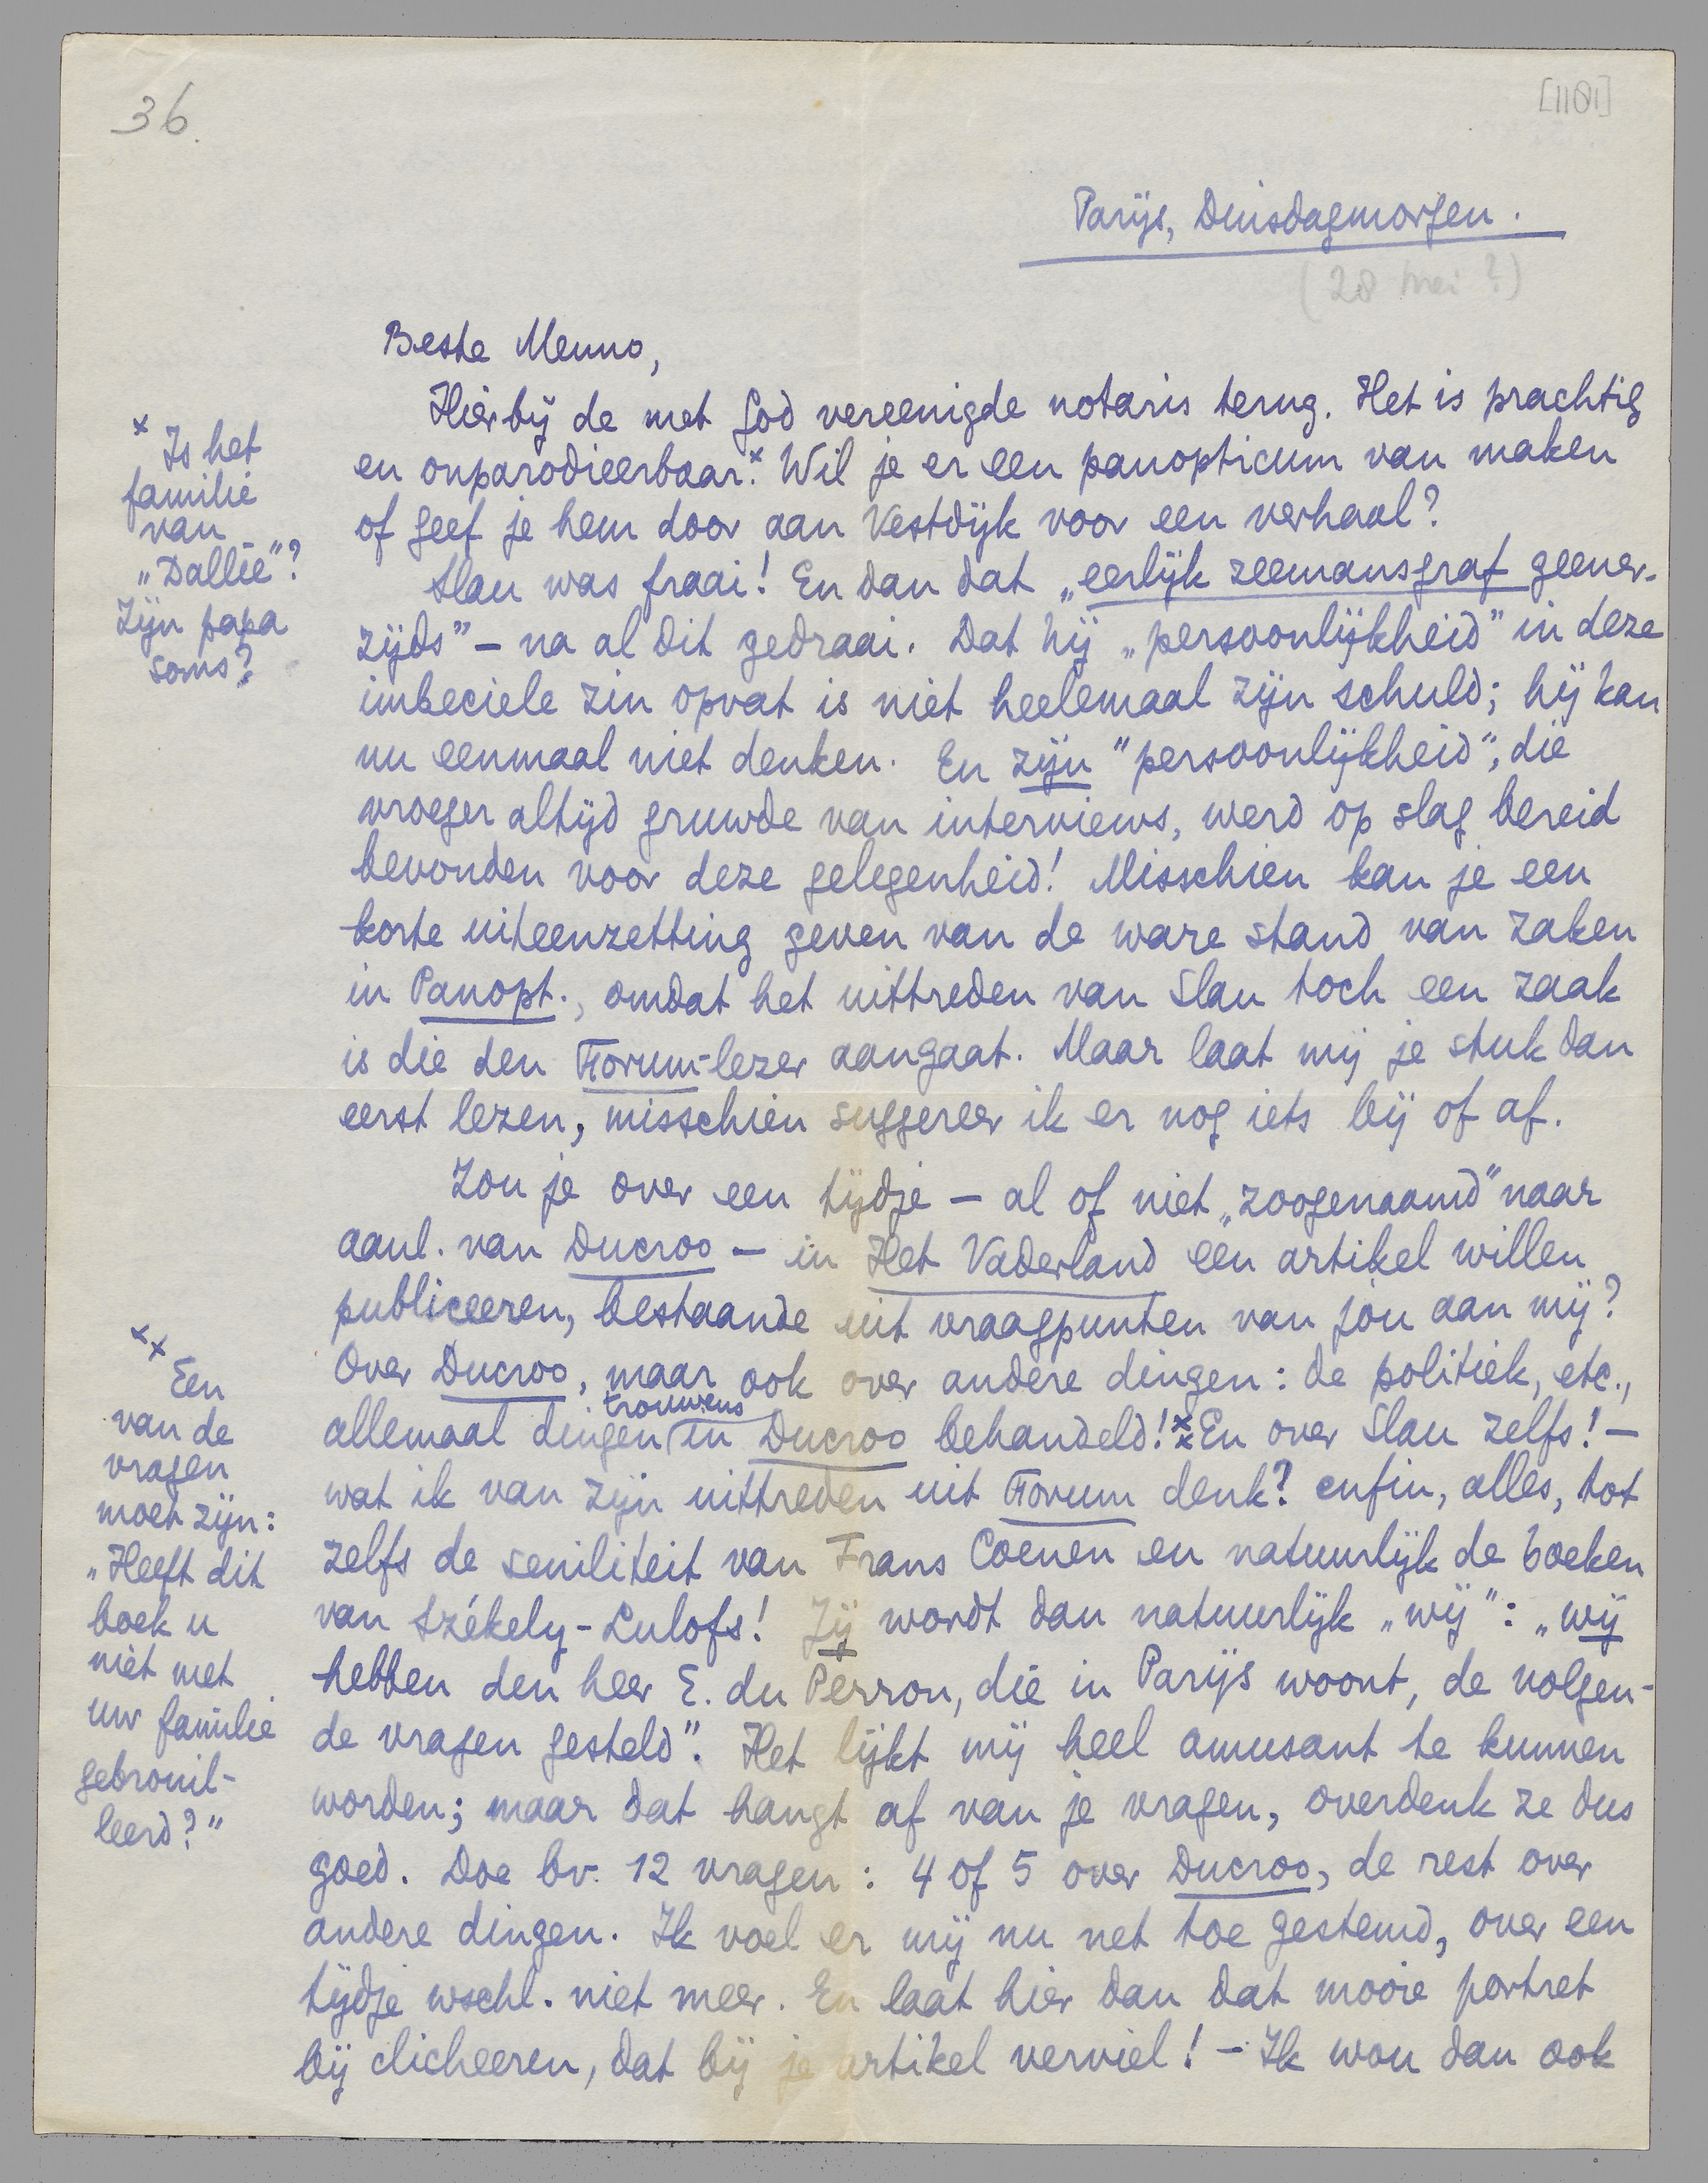 36.
[1101]
Parijs, Dinsdagmorgen.
(28 mei ?)
Beste Menno,
Hierbij de met God vereenigde notaris terug. Het is prachtig
en onparodieerbaar.x Wil je er een panopticum van maken
of geef je hem door aan Vestdijk voor een verhaal?
Slau was fraai! En dan dat „eerlijk zeemansgraf geener-
zijds” – na al dit gedraai. Dat hij „persoonlijkheid” in deze
imbeciele zin opvat is niet heelemaal zijn schuld; hij kan
nu eenmaal niet denken. En zijn "persoonlijkheid", die
vroeger altijd gruwde van interviews, werd op slag bereid
bevonden voor deze gelegenheid! Misschien kan je een
korte uiteenzetting geven van de ware stand van zaken
in Panopt., omdat het uittreden van Slau toch een zaak
is die den Forum-lezer aangaat. Maar laat mij je stuk dan
eerst lezen, misschien suggereer ik er nog iets bij of af.
Zou je over een tijdje – al of niet „zoogenaamd” naar
aanl. van Ducroo – in Het Vaderland een artikel willen
publiceeren, bestaande uit vraagpunten van jou aan mij?
Over Ducroo, maar ook over andere dingen: de politiek, etc.,
allemaal dingen trouwens in Ducroo behandeld!xx En over Slau zelfs! –
wat ik van zijn uittreden uit Forum denk? enfin, alles, tot
zelfs de seniliteit van Frans Coenen en natuurlijk de boeken
van Székely-Lulofs! Jij wordt dan natuurlijk „wij”: „wij
hebben den heer E. du Perron, die in Parijs woont, de volgen-
de vragen gesteld”. Het lijkt mij heel amusant te kunnen
worden; maar dat hangt af van je vragen, overdenk ze dus
goed. Doe bv. 12 vragen: 4 of 5 over Ducroo, de rest over
andere dingen. Ik voel er mij nu net toe gestemd, over een
tijdje wschl. niet meer. En laat hier dan dat mooie portret
bij clicheeren, dat bij je artikel verviel! – Ik wou dan ook
x Is het
familie
van
„Dallie”?
Zijn papa
soms?
xx Een
van de
vragen
moet zijn:
„Heeft dit
boek u
niet met
uw familie
gebrouil-
leerd?”